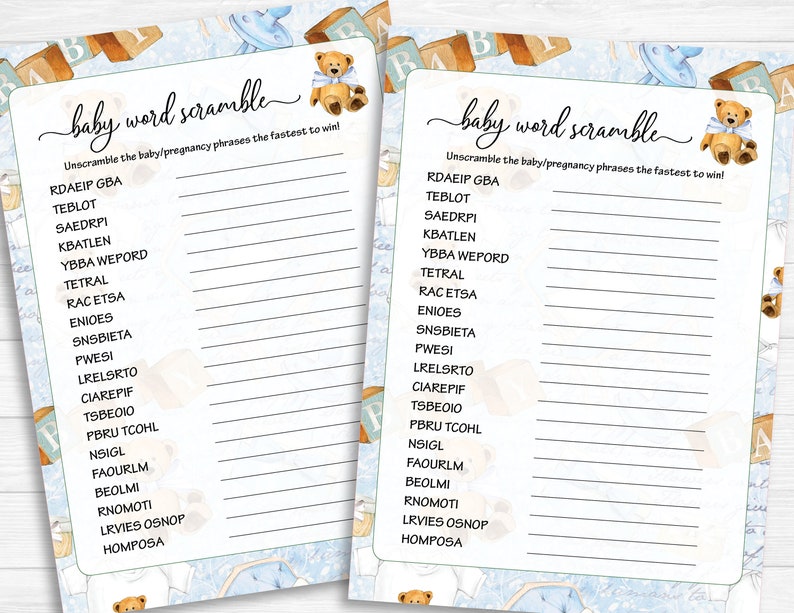 BABY
baby word scramble
Unscramble the baby/pregnancy phrases the fastest to win!
RDAEIP GBA
TEBLOT
SAEDRPI
KBATLEN
YBBA WEPORD
TETRAL
RAC ETSA
ENIOES
SNSBIETA
PWESI
LRELSRTO
CIAREPIF
TSBEOIO
PBRU TCOHL
NSIGL
FAOURLM
BEOLMI
RNOMOTI
LRVIES OSNOP
HOMPOSA
BABY
baby word scramble
Unscramble the baby/pregnancy phrases the fastest to win!
RDAEIP GBA
TEBLOT
SAEDRPI
KBATLEN
YBBA WEPORD
TETRAL
RAC ETSA
ENIOES
SNSBIETA
PWESI
LRELSRTO
CIAREPIF
TSBEOIO
PBRU TCOHL
NSIGL
FAOURLM
BEOLMI
RNOMOTI
LRVIES OSNOP
HOMPOSA